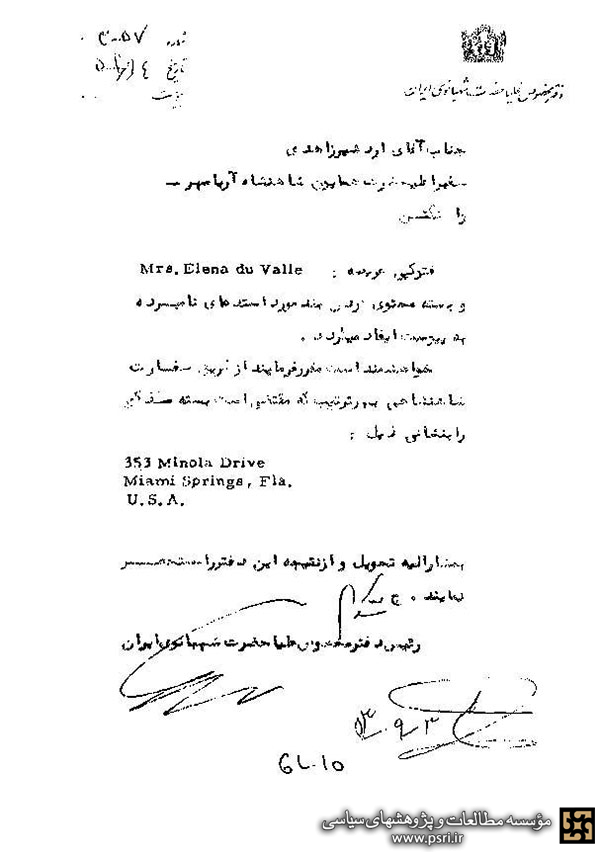 شماره
تاریخ
پیوست
دفتر مخصوص علیاحضرت شهبانوی ایران
جناب آقای اردشیر زاهدی
سفیر اعلیحضرت همایون شاهنشاه آریامهر ـ
واشنگتن
فتوکپی عریضه : Mrs. Elena du Valle
و بسته محتوی مورد استدعای نامبرده
به پیوست ایفاد میگردد .
خواهشمند است مقرر فرمایند از طریق سفارت
شاهنشاهی بهر ترتیب که مقتضی است بسته
را بنشانی ذیل :
353 Minola Drive
Miami Springs, Fla.
U.S.A.
بمشارالیه تحویل و از نتیجه این دفتر را مستحضر
نمایند . ج
رئیس دفتر مخصوص علیاحضرت شهبانوی ایران
GL.10
مؤسسه مطالعات و پژوهشهای سیاسی
www.psri.ir